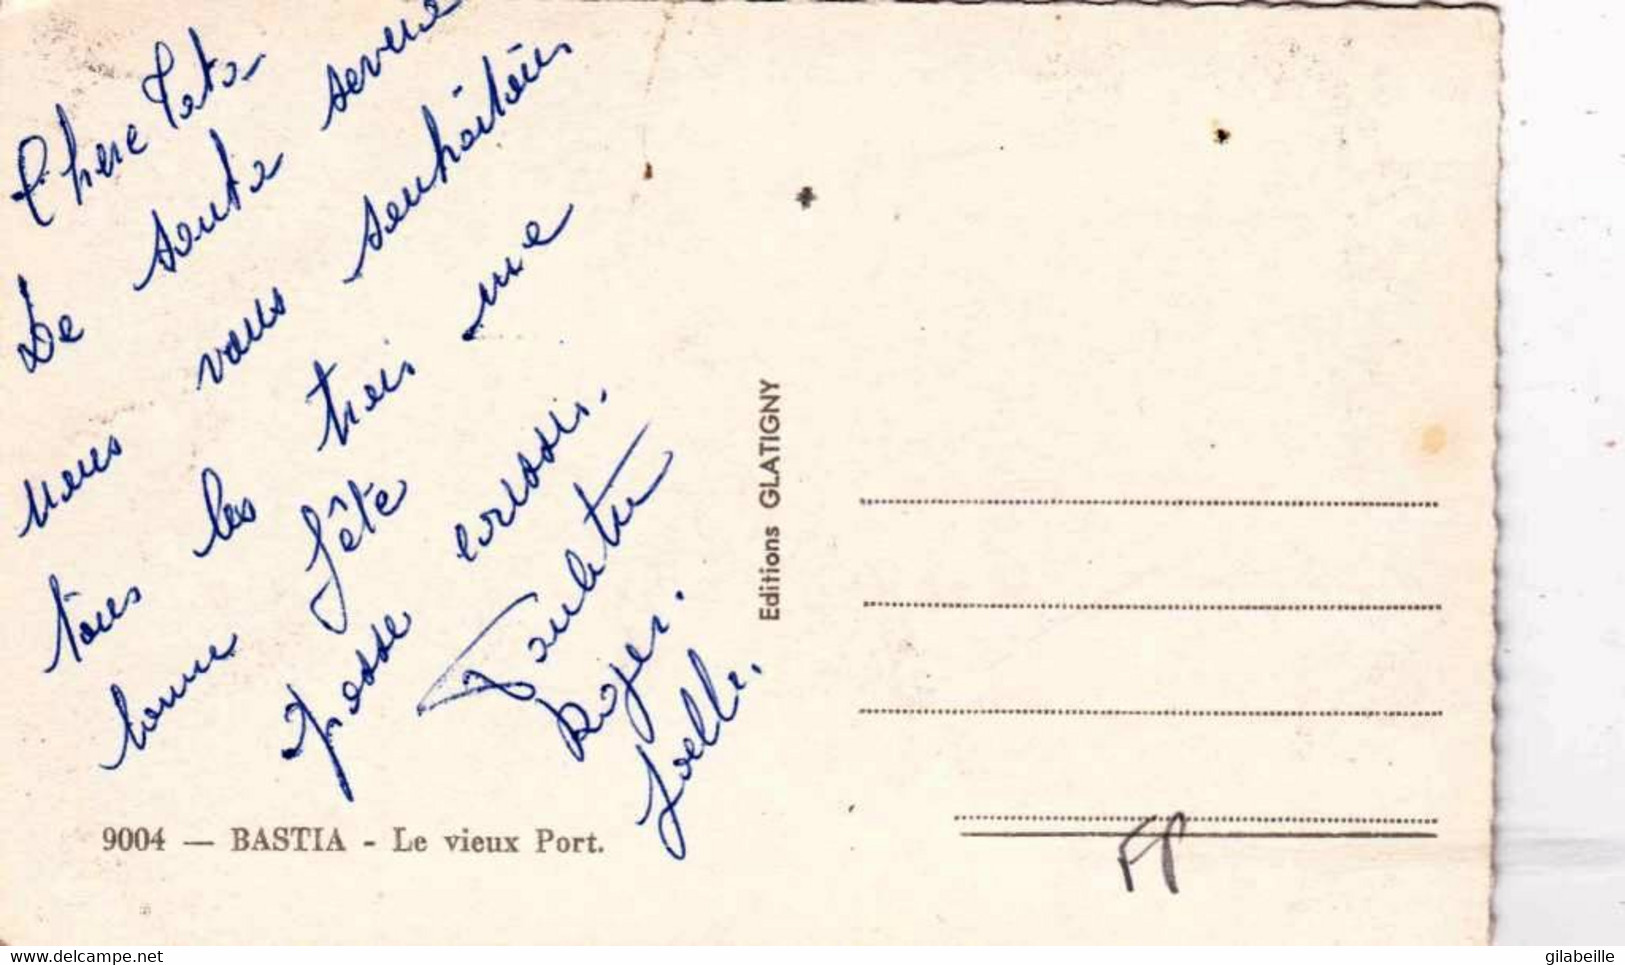 Chere Tata
De
nous vous souhaitons
tous les trois une
bonne fête
grosse
Roger.
Joelle.
Editions GLATIGNY
9004 — BASTIA - Le vieux Port.
FP
delcampe.net
gilabeille